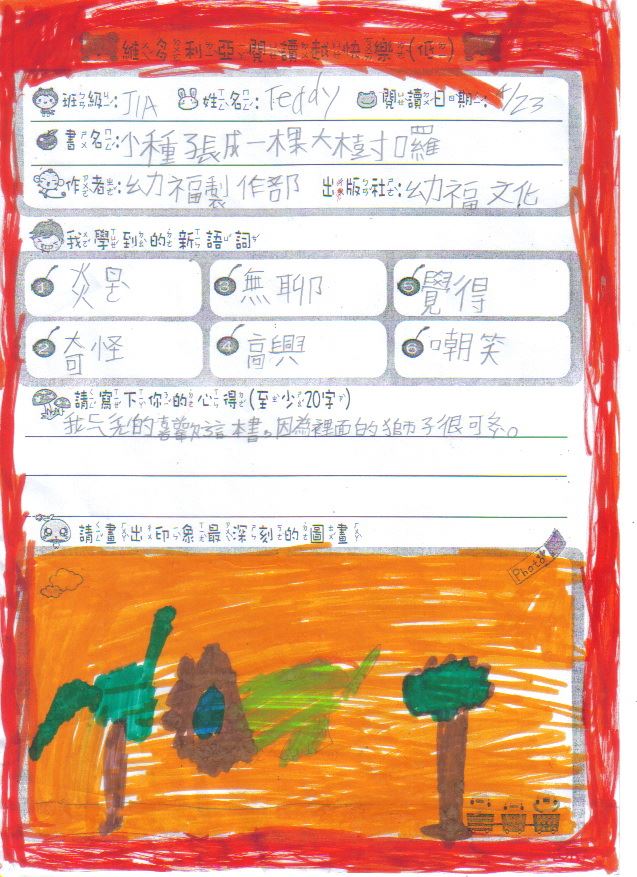 維多利亞閱讀越快樂(低)
班級: J1A 姓名: Teddy 閱讀日期: 4/23
書名: 小種子張成一棵大樹囉
作者: 幼福製作部 出版社: 幼福文化
我學到的新語詞
1 炎 3 無聊 5 覺得
2 奇怪 4 高興 6 嘲笑
請寫下你的心得(至少20字)
我 的喜歡這本書。因為裡面的獅子很可
請畫出印象最深刻的圖畫
Photo